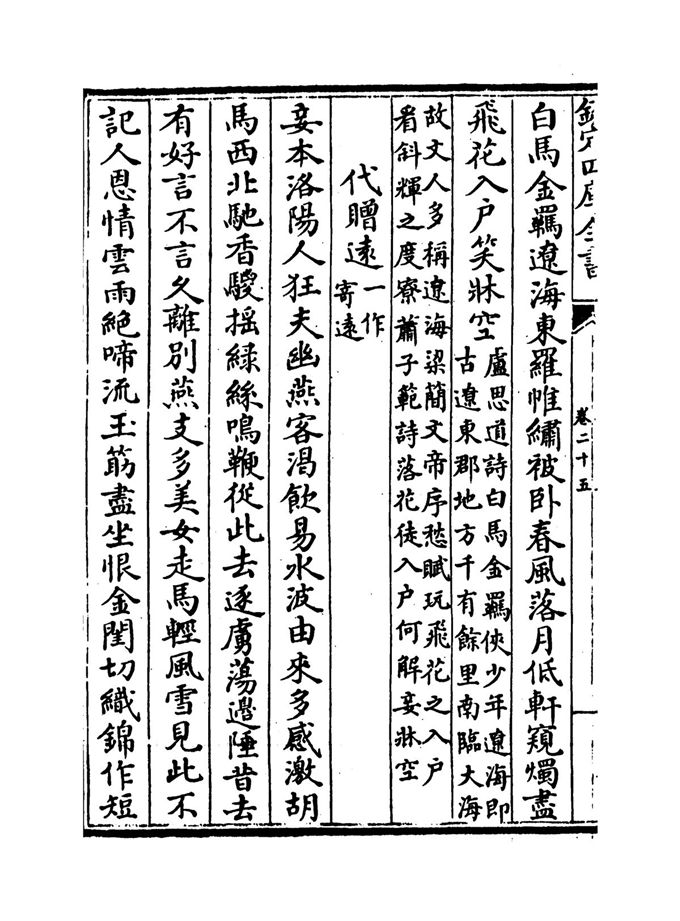 欽定四庫全書
卷二十五
白馬金羈遼海東羅帷繡被卧春風落月低軒窺燭盡
飛花入户笑牀空盧思道詩白馬金羈俠少年遼海即
古遼東郡地方千有餘里南臨大海
故文人多稱遼海梁簡文帝序愁賦玩飛花之入户
看斜輝之度寮蕭子範詩落花徒入户何解妾牀空
代贈逺一作
寄逺
妾本洛陽人狂夫幽燕客渇飲易水波由來多感激胡
馬西北馳香騣揺緑絲鳴鞭從此去逐虜蕩邉陲昔去
有好言不言久離别燕支多美女走馬輕風雪見此不
記人恩情雲雨絶啼流玉筯盡坐恨金閨切織錦作短